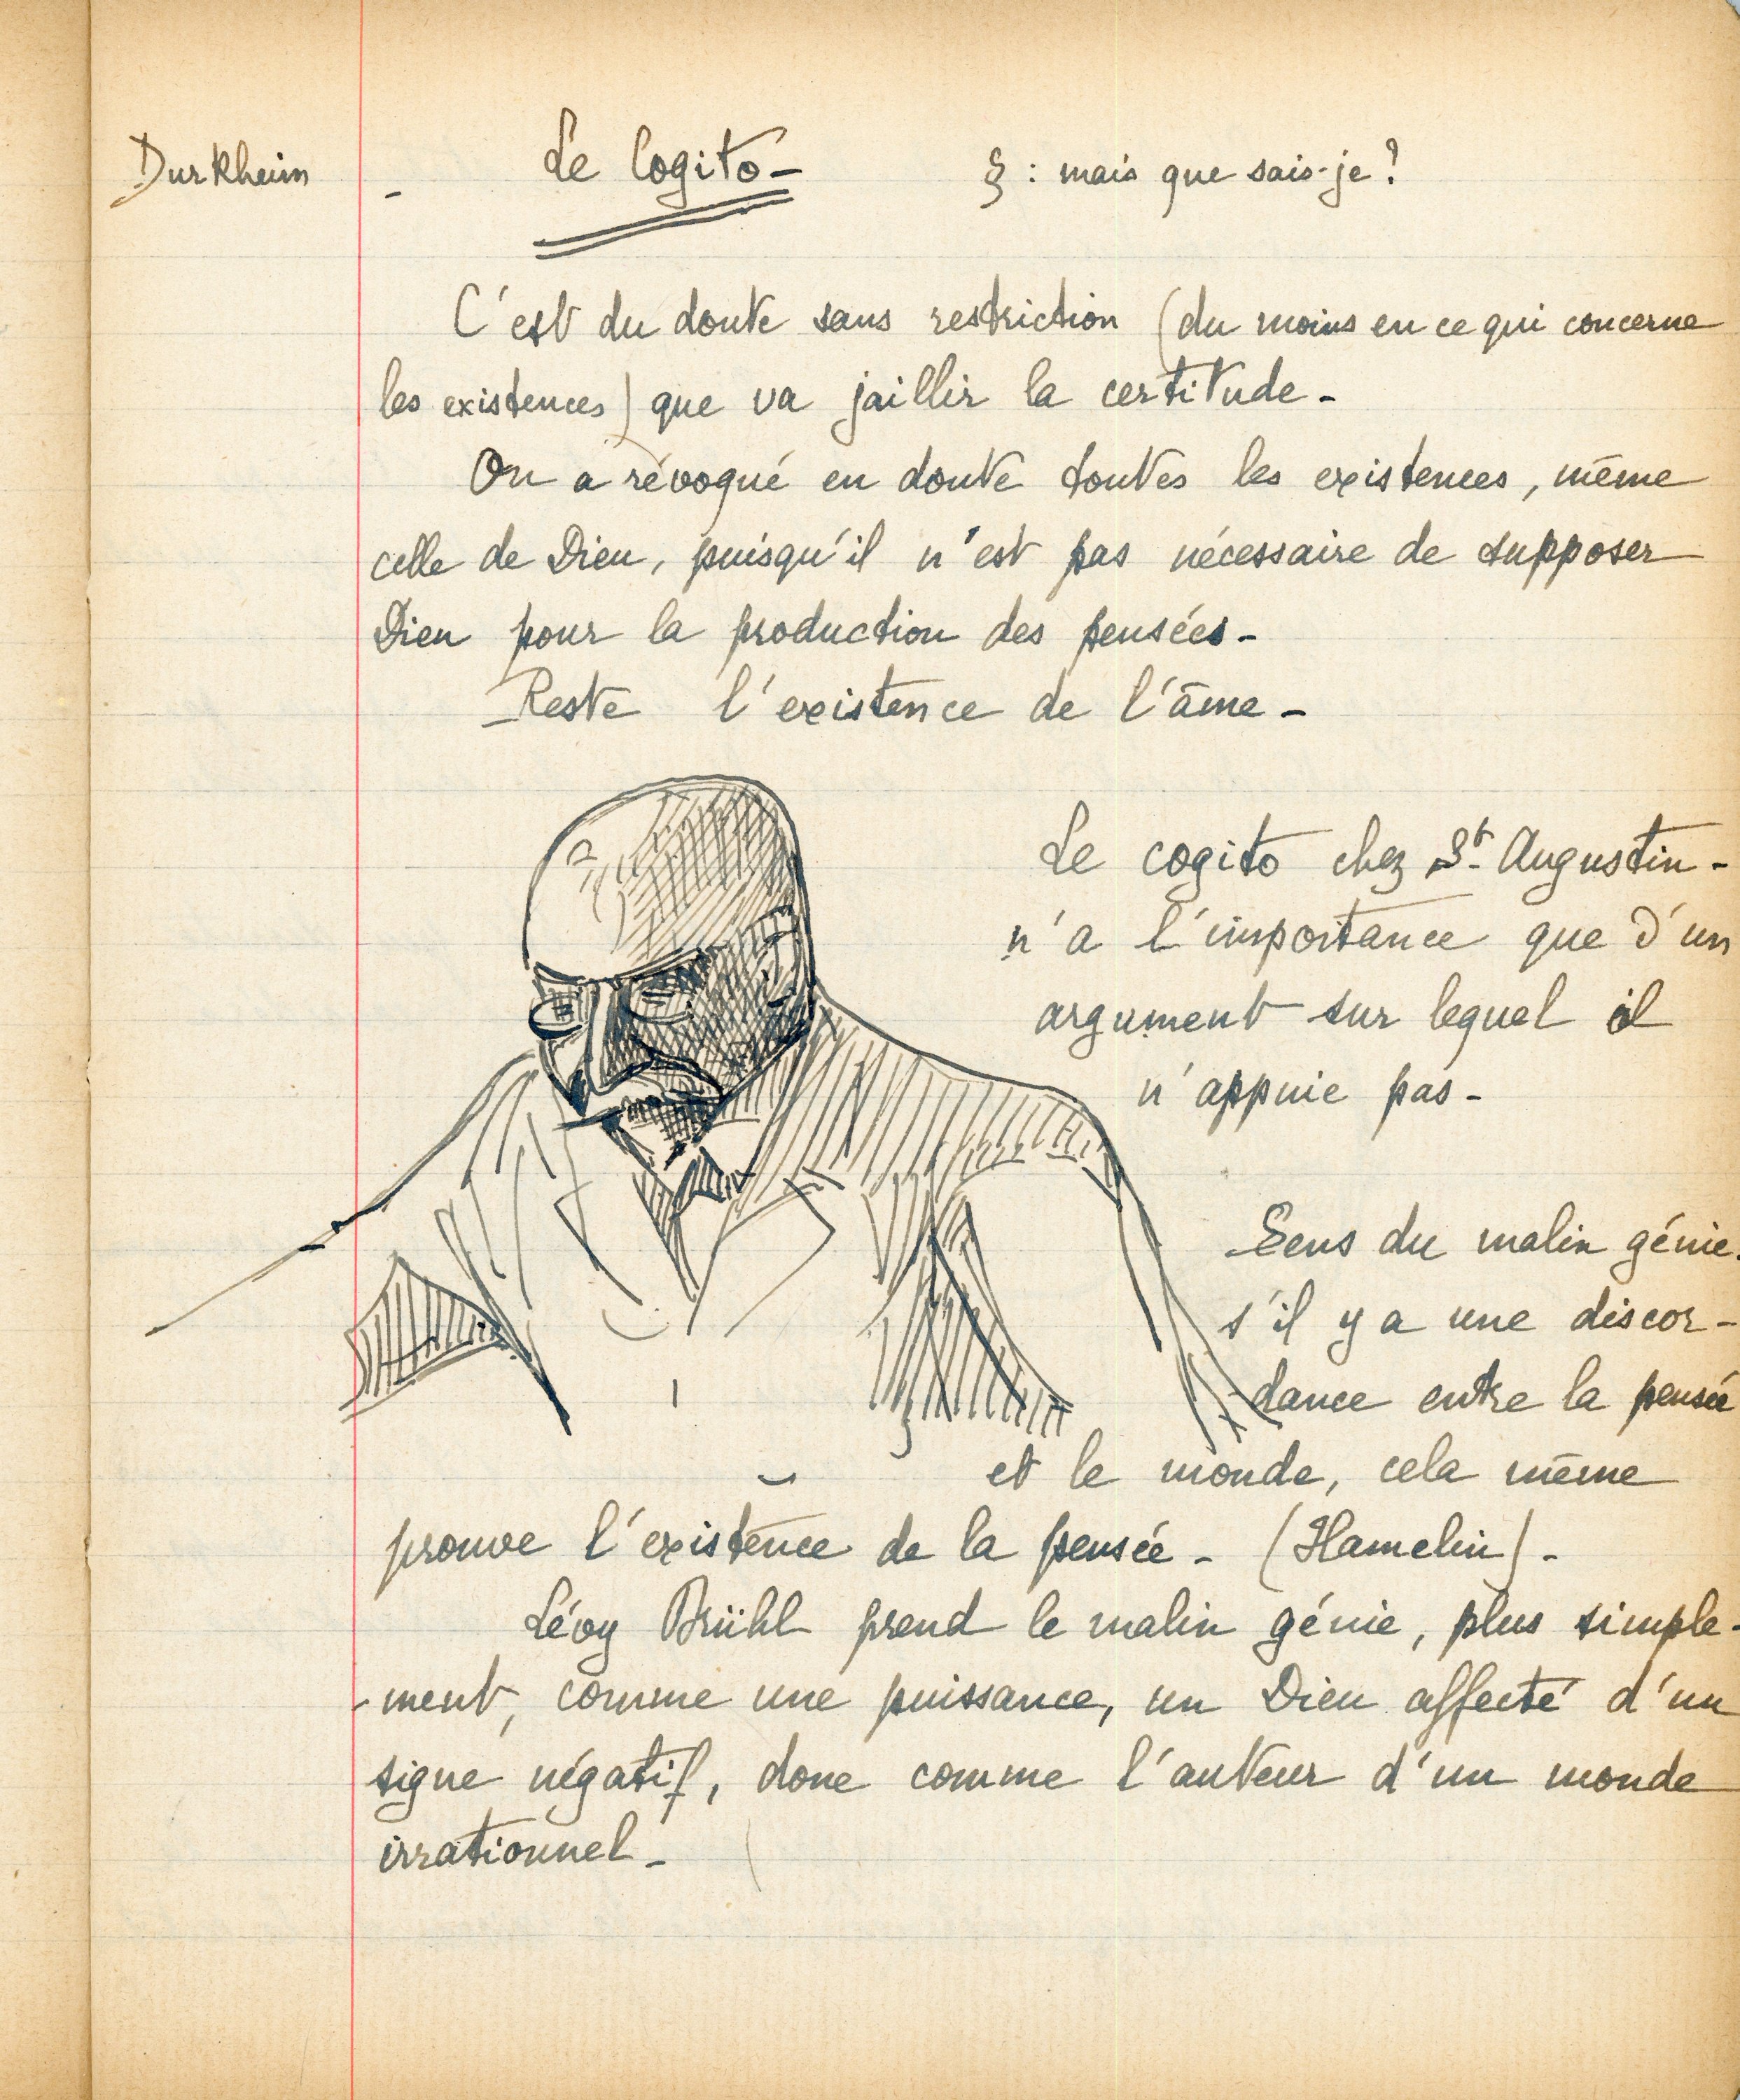 Durkheim - Le Cogito - § : mais que sais-je ?
C'est du doute sans restriction (du moins en ce qui concerne
les existences) que va jaillir la certitude -
On a révoqué en doute toutes les existences, même
celle de Dieu, puisqu'il n'est pas nécessaire de supposer
Dieu pour la production des pensées -
Reste l'existence de l'âme -
Le cogito chez St Augustin -
n'a l'importance que d'un
argument sur lequel il
n'appuie pas -
Sens du malin génie.
s'il y a une discor-
dance entre la pensée
et le monde, cela même
prouve l'existence de la pensée - (Hamelin) -
Lévy Brühl prend le malin génie, plus simple-
-ment, comme une puissance, un Dieu affecté d'un
signe négatif, donc comme l'auteur d'un monde
irrationnel -